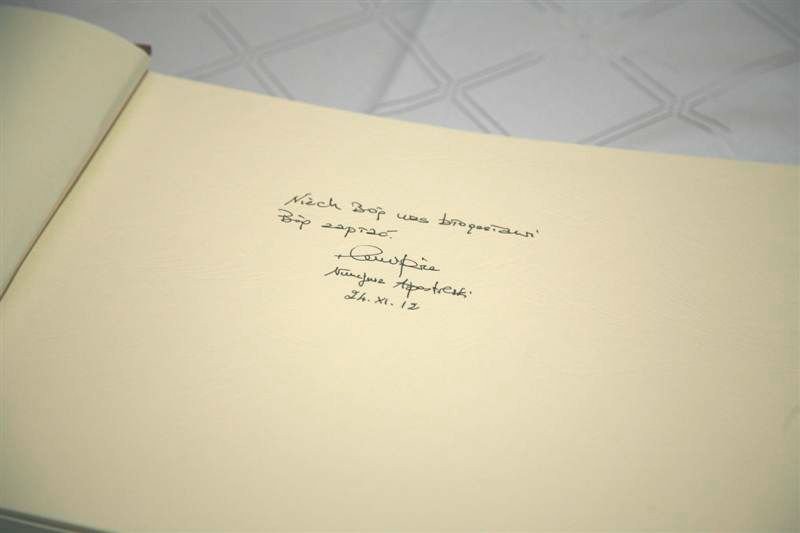 Niech Bóg was błogosławi
Bóg zapłać.
Nuncjusz Apostolski
24.XI.12